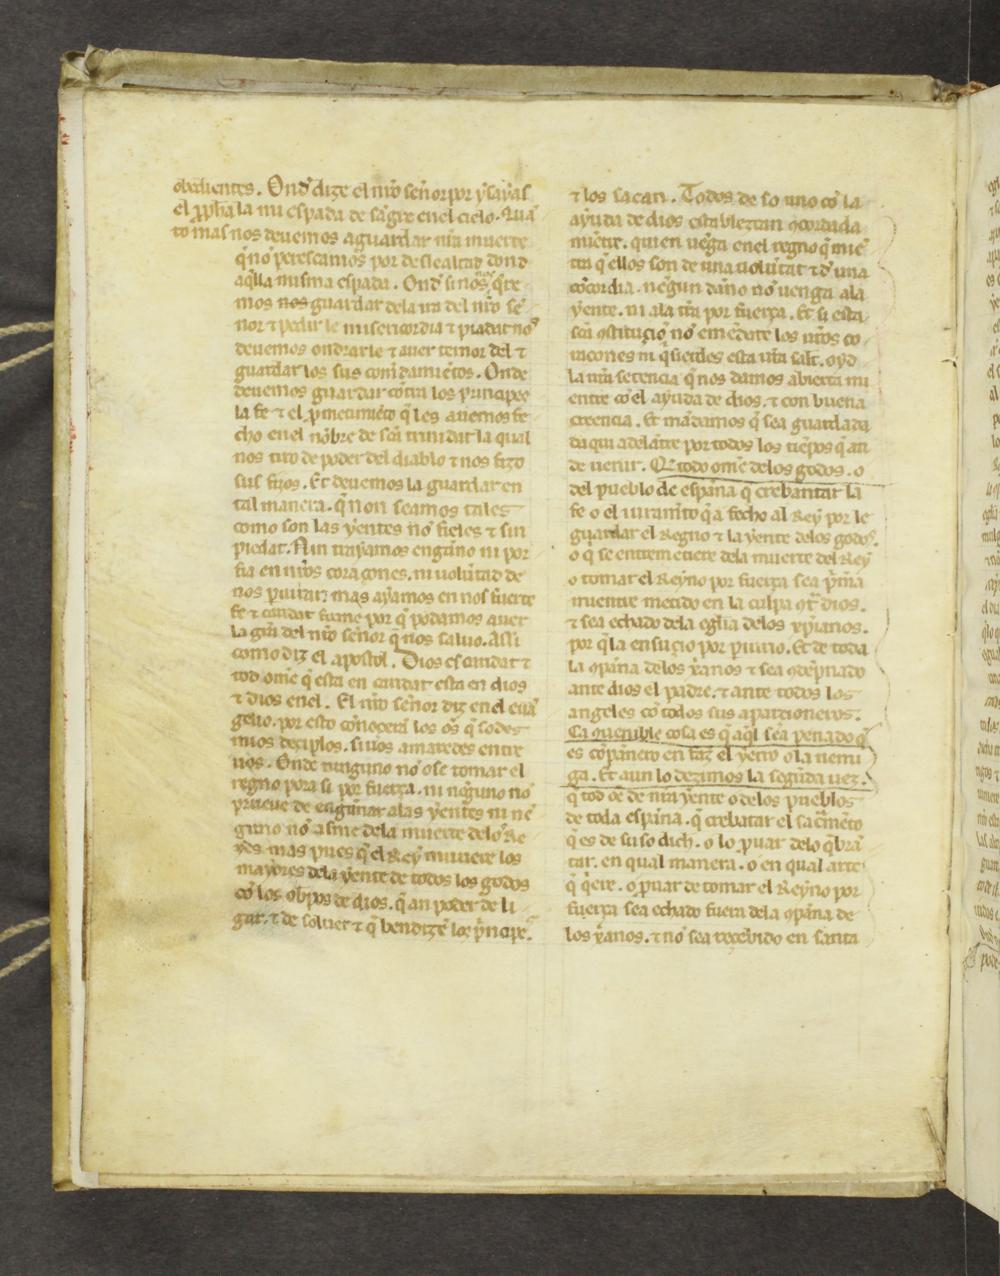 obedientes. Ond dize el nro señor por ysayas
el ppha la mi espada de sangre en el cielo. Qua
to mas nos deuemos aguardar nra muerte
q̃ no perescamos por deslealtad dond
aq̃lla misma espada. Ond si nos q̃re
mos nos guardar dela ira del nro se
nor τ pedir le misericordia τ piadat no
deuemos ondrarle τ auer temor del τ
guardar los sus comdamietos. Onde
deuemos guardar contra los principes
la fe τ el pmetimieto q̃ les auemos fe
cho en el nõbre de sca trinidat la qual
nos tiro de poder del diablo τ nos fizo
sus fijos. Et deuemos la guardar en
tal manera. q̃ non seamos tales
como son las yentes no fieles τ sin
piedat. Nin trayamos engaño ni por
fia en nros coraçones. ni volũtad de
nos piurar mas ayamos en nos fuerte
fe τ caridat firme por q̃ podamos auer
la gra del nro señor q̃ nos saluo. Assi
como diz el apostol. Dios es caridat τ
tod ome q̃ esta en caridat esta en dios
τ dios en el. El nro señor diz en el euã
gelio. por esto conoçera los os q̃ sodes
mios deciplos. si uos amaredes entre
uos. Onde ninguno no ose tomar el
regno pora si por fuerça. ni neguno no
prueue de engañar alas yentes ni ne
guno no asme dela muerte delos Re
yes mas pues q̃ el Rey muriere los
mayores dela yente de todos los godos
cõ los obpos de dios. q̃ an poder de li
gar. τ de soluer τ q̃ bendizẽ los p̃ncipes
τ los sacan. Todos de so uno cõ la
ayuda de dios establezcan qcordada
miẽtre. quien vẽga en el regno q̃ mie
tra q̃ ellos son de una uolũtat τ d una
cõcordia. negun daño no uenga ala
yente. ni ala tra por fuerça. Et si esta
sca ostitucio no emẽdare los uros co
racones ni q̃sierdes esta ura salt. oyd
la nra setencia q̃ nos damos abierta mi
entre co el ayuda de dios. τ con buena
creencia. Et mãdamos q̃ sea guardada
da qui adelãtre por todos los tiẽpos q̃ an
de uenir. Q̃ todo ome delos godos. o
del pueblo de españa q̃ crebantar la
fe o el iuramto q̃ a fecho al Rey por le
guardar el Regno τ la yente delos godos.
o q̃ se entremetiere dela muerte del Rey
o tomar el Reyno por fuerça sea prima
mientre metido en la culpa qtra dios.
τ sea echado dela eglia delos xpianos.
por q̃ la ensuzio por piurio. Et de toda
la qpaña delos xanos τ sea qdepnado
ante dios el padre. τ ante todos los
angeles cõ todos sus aparcioneros.
Ca quenible cosa es q̃ aq̃l sea penado q̃
es cõpañero en faz el yerro o la nemi
ga. Et aun lo dezimos la segũda uez.
q̃ tod oe de nra yente o delos pueblos
de toda españa. q̃ crebãtar el sacrmeto
q̃ es de suso dich. o lo puar delo q̃brã
tar. en qual manera. o en qual arte
q̃ q̃ere. o puar de tomar el Reyno por
fuerça sea echado fuera dela qpaña de
los xanos. τ no sea recebido en santa